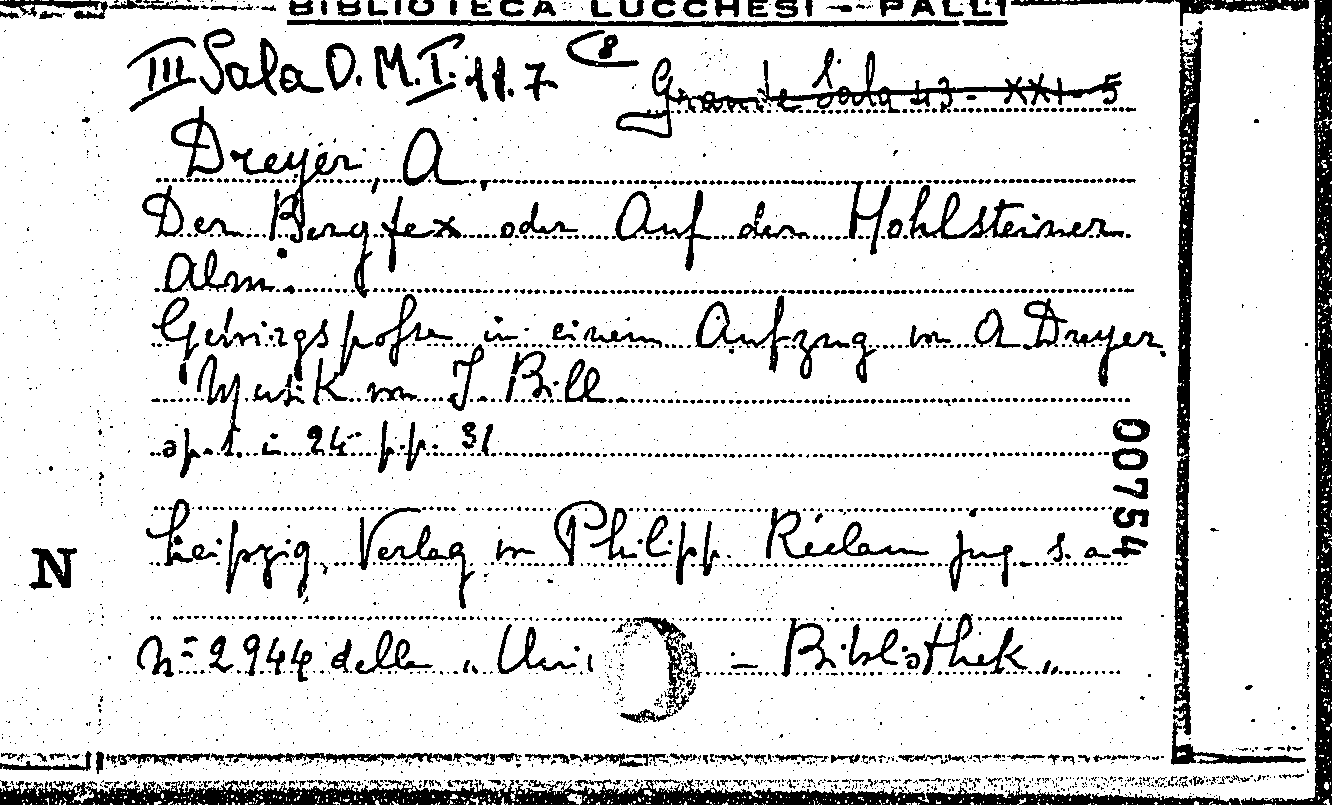 BIBLIOTECA LUCCHESI - PALLI
III Sala O. M. I. 11. 7 (8
Grande Sala 43 - XXI - 5
Dreyer, A.
Der Bergfex oder Auf der Hohlsteiner
Alm.
Gebirgsposse in einem Aufzug von A. Dreyer.
Musik von J. Bill.
ap. s. i 24 p.p. 31
Leipzig, Verlag von Philipp. Reclam jug. s. a.
00754
N
N= 2944 della „ Uni - Bibliothek „